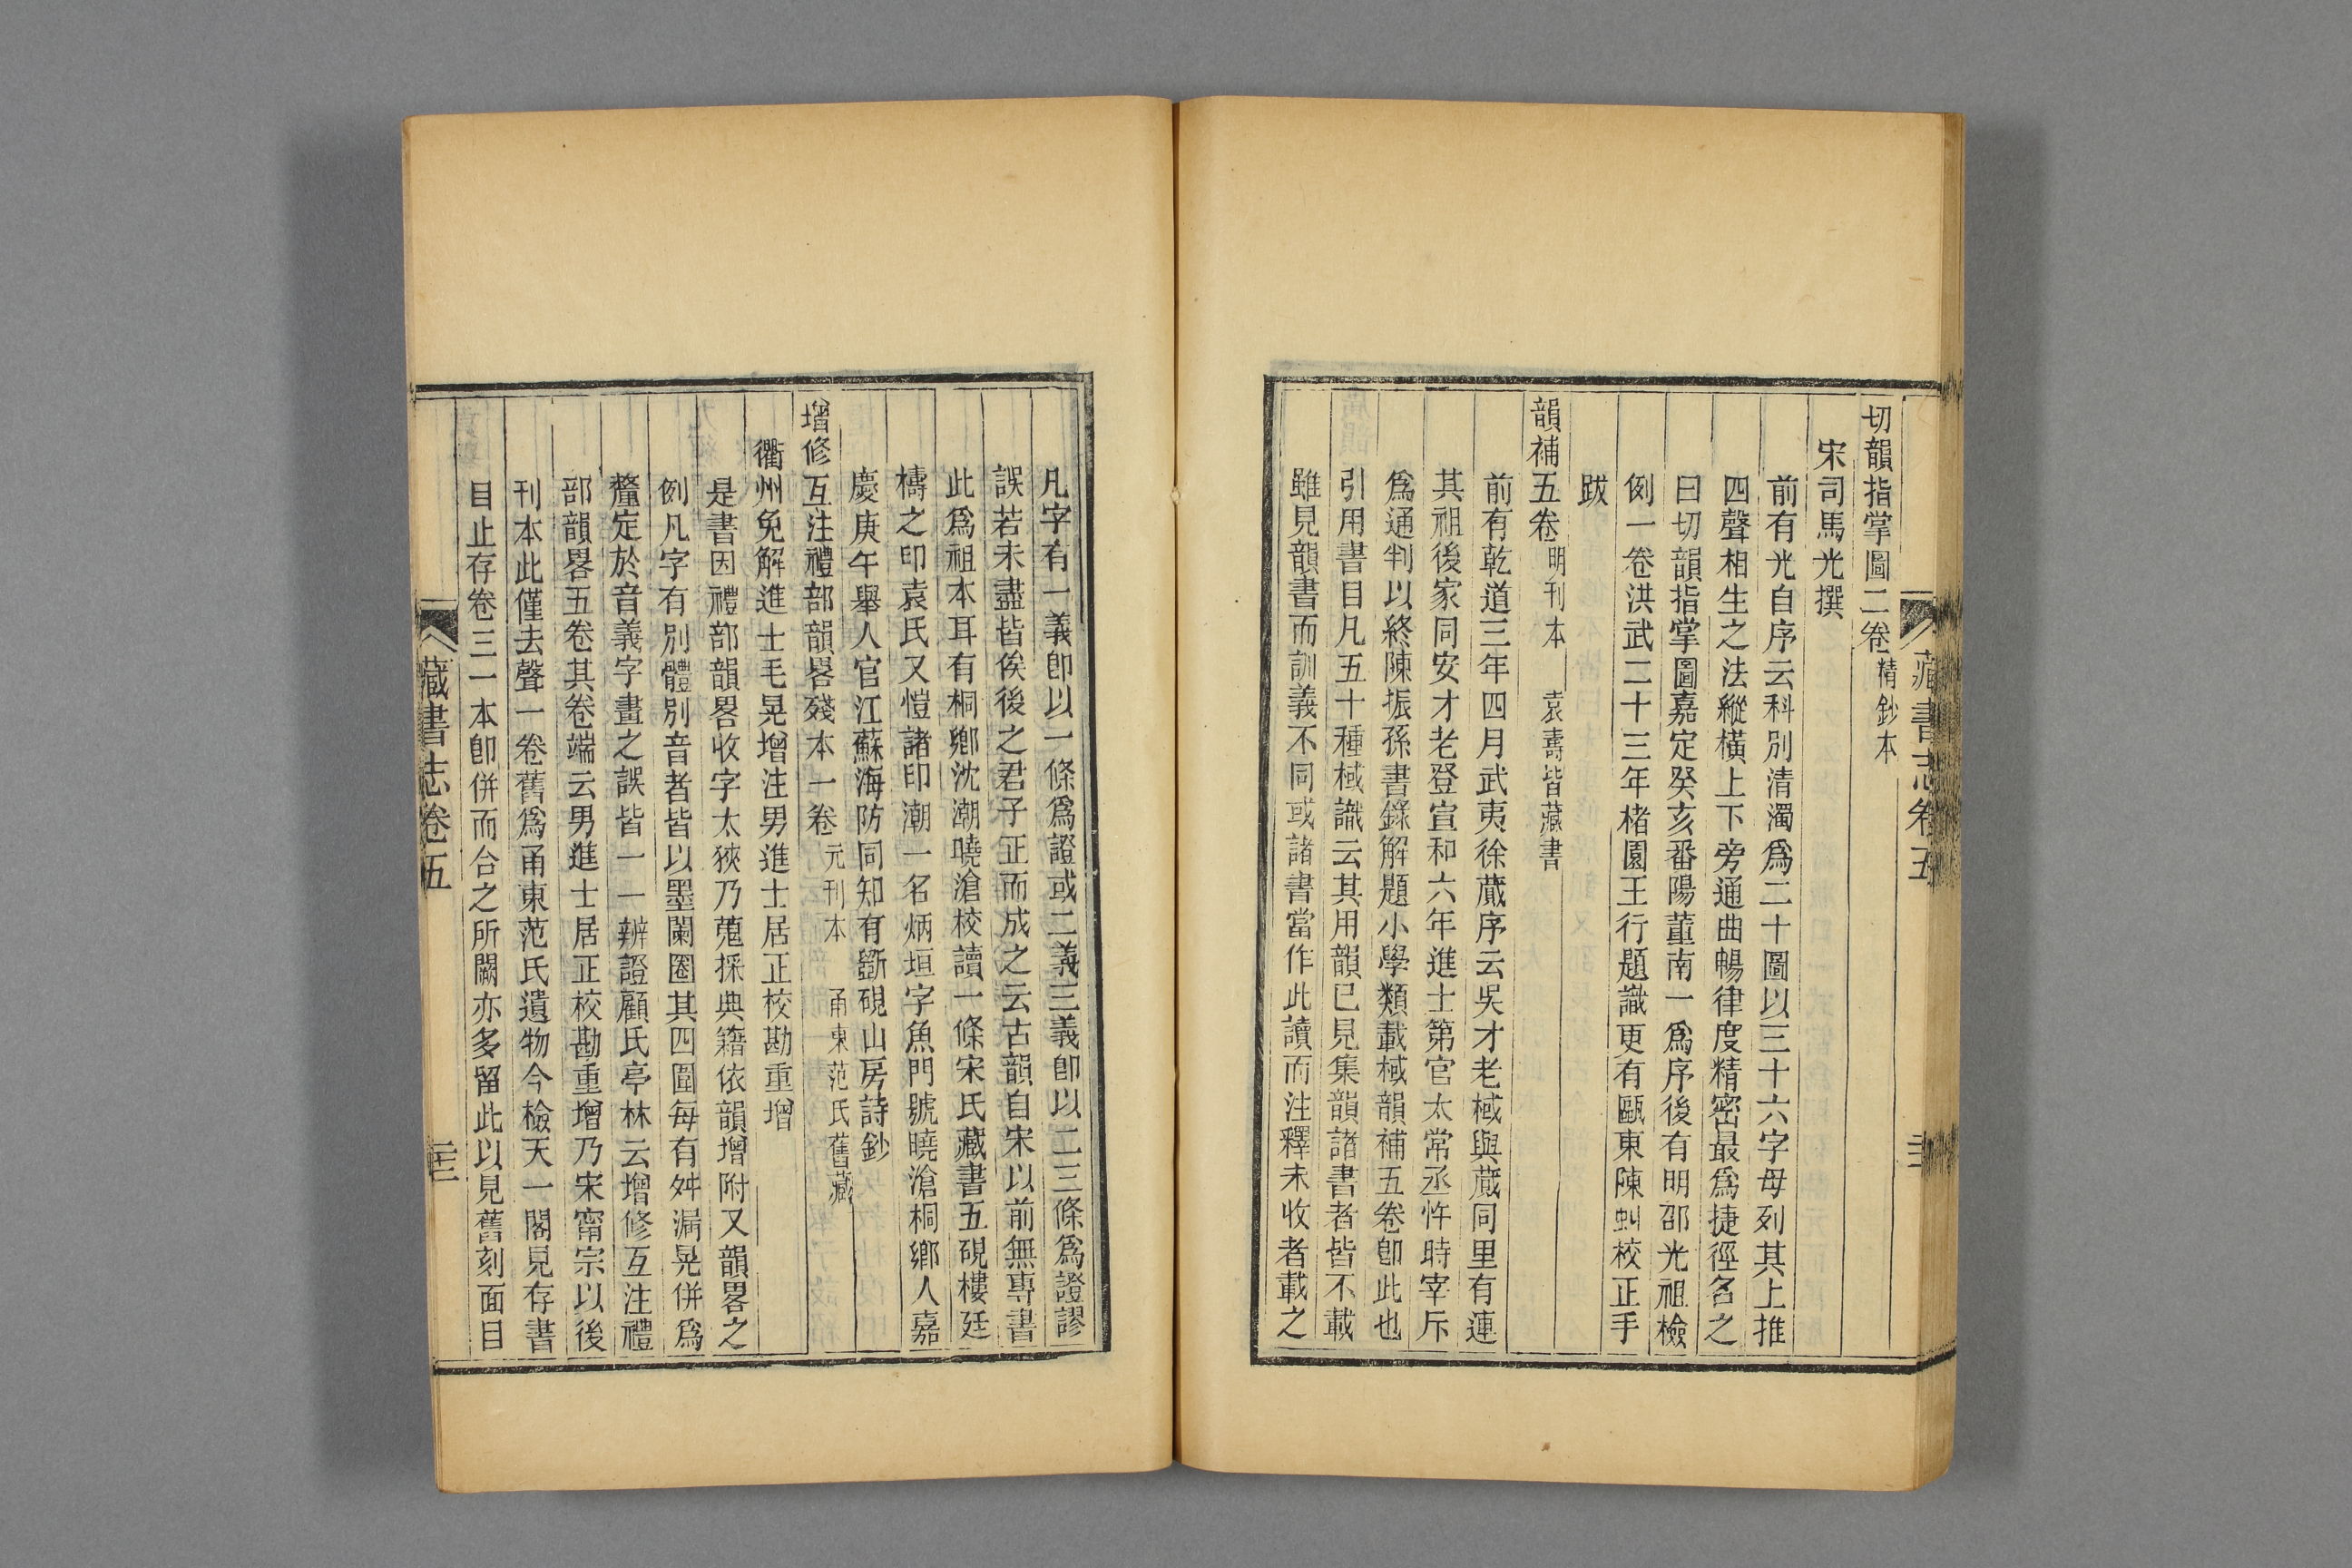 切韻指掌圖二卷 精鈔本
宋司馬光撰
前有光自序云科別清濁爲二十圖以三十六字母列其上推
四聲相生之法縱橫上下旁通曲暢律度精密最爲捷徑名之
曰切韻指掌圖嘉定癸亥番陽董南一爲序後有明邵光祖檢
例一卷洪武二十三年楮園王行題識更有甌東陳虯校正手
跋
韻補五卷 明刊本 袁壽皆藏書
前有乾道三年四月武夷徐蕆序云吳才老棫與蕆同里有連
其祖後家同安才老登宣和六年進士第官太常丞忤時宰斥
爲通判以終陳振孫書錄解題小學類載棫韻補五卷卽此也
引用書目凡五十種棫識云其用韻已見集韻諸書者皆不載
雖見韻書而訓義不同或諸書當作此讀而注釋未收者載之
藏書志卷五
凡字有一義卽以一條爲證或二義三義卽以二三條爲證謬
誤若未盡皆俟後之君子正而成之云古韻自宋以前無專書
此爲祖本耳有桐鄉沈潮曉滄校讀一條宋氏藏書五硯樓廷
檮之印袁氏又愷諸印潮一名炳垣字魚門號曉滄桐鄉人嘉
慶庚午舉人官江蘇海防同知有斵硯山房詩鈔
增修互注禮部韻畧殘本一卷 元刊本 甬東范氏舊藏
衢州免解進士毛晃增注男進士居正校勘重增
是書因禮部韻畧收字太狹乃蒐採典籍依韻增附又韻畧之
例凡字有別體別音者皆以墨闌圈其四圍每有舛漏晃併爲
釐定於音義字畫之誤皆一一辨證顧氏亭林云增修互注禮
部韻畧五卷其卷端云男進士居正校勘重增乃宋甯宗以後
刊本此僅去聲一卷舊爲甬東范氏遺物今檢天一閣見存書
目止存卷三一本卽併而合之所闕亦多留此以見舊刻面目
藏書志卷五